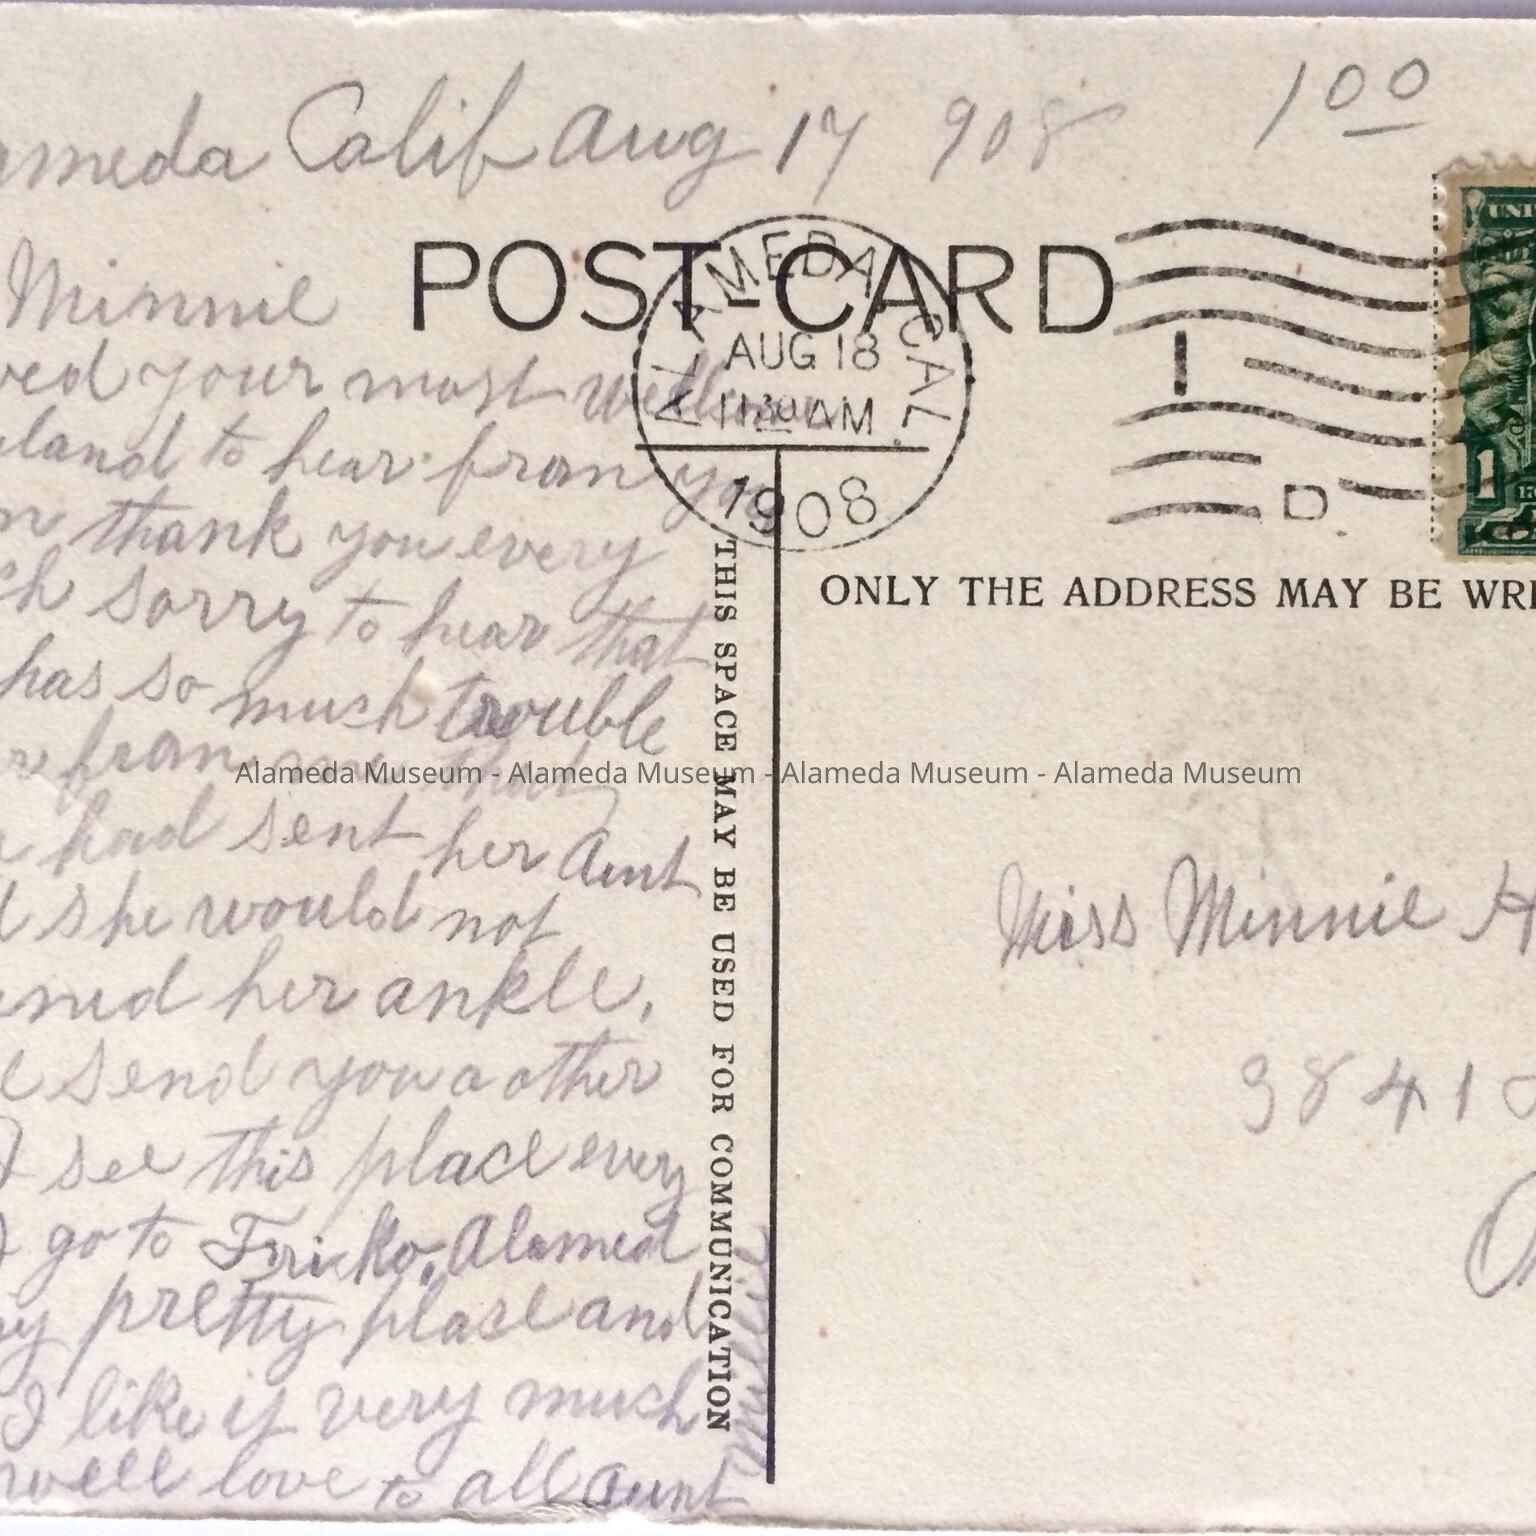 ameda Calif Aug 17 908
100
POST-CARD
ALAMEDA CAL.
AUG 18
11 30 AM
1908
1
D
UNI
1
Minnie
ved your most wellcome
land to hear from you
n thank you every
ch sorry to hear that
has so much trouble
from
had sent her Aunt
d she would not
ined her ankle.
e send you a other
I see this place every
I go to Frisko, Alamed
y pretty place and
I like it very much
well love to all Aunt
THIS SPACE MAY BE USED FOR COMMUNICATION
ONLY THE ADDRESS MAY BE WRI
Miss Minnie H
3841
Alameda Museum - Alameda Museum - Alameda Museum - Alameda Museum